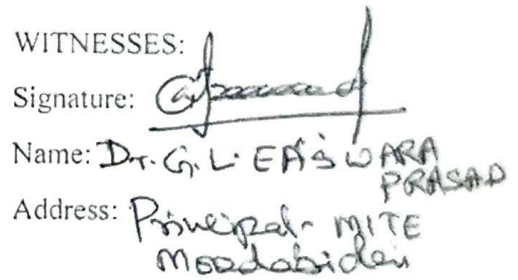 WITNESSES:
Signature:
Name: Dr. G. L. EASWARA
PRASAD
Address: Principal- MITE
Moodabidri